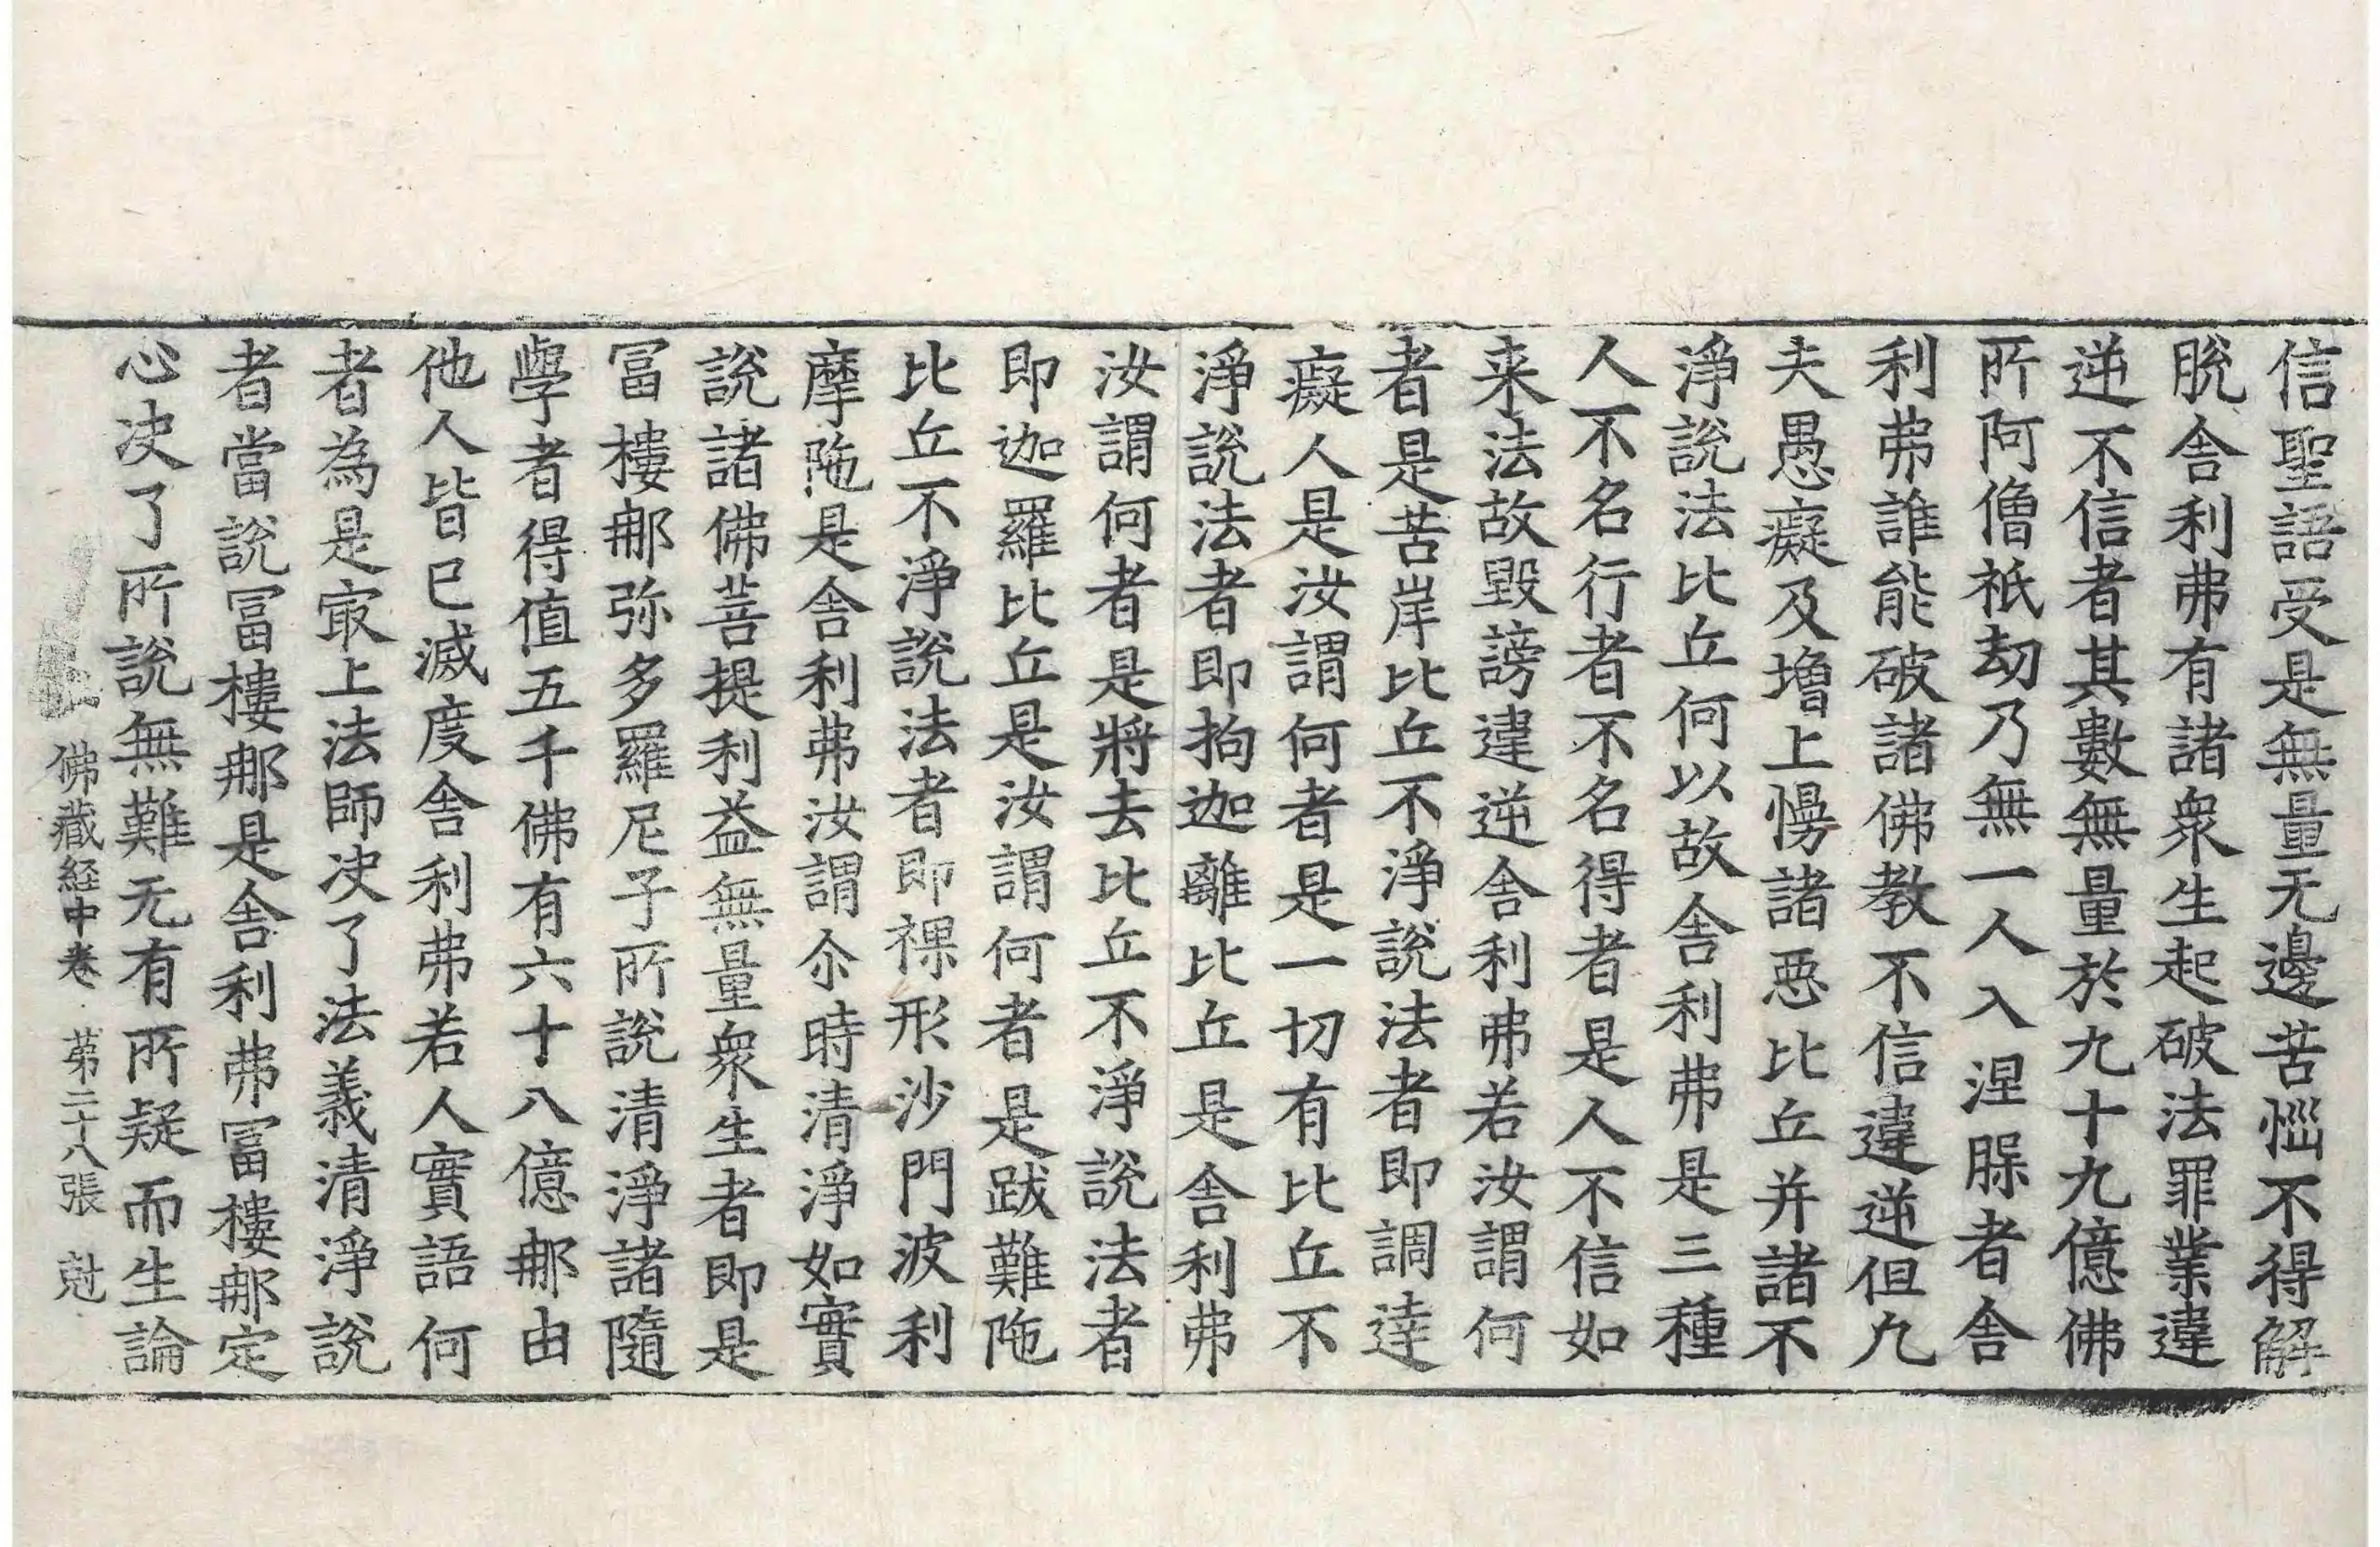 信聖語受是無量无邊苦惱不得解
脫舍利弗有諸衆生起破法罪業違
逆不信者其數無量於九十九億佛
所阿僧祇劫乃無一人入涅膝者舍
利弗誰能破諸佛教不信違逆但凢
夫愚癡及增上慢諸惡比丘并諸不
淨說法比丘何以故舍利弗是三種
人不名行者不名得者是人不信如
来法故毀謗違逆舍利弗若汝謂何
者是苦岸比丘不淨說法者即調達
癡人是汝謂何者是一切有比丘不
淨說法者即拘迦離比丘是舍利弗
汝謂何者是將去比丘不淨說法者
即迦羅比丘是汝謂何者是跋難陁
比丘不淨說法者即裸形沙門波利
摩陁是舍利弗汝謂尒時清淨如實
說諸佛菩提利益無量衆生者即是
冨樓那弥多羅尼子所說清淨諸隨
學者得值五千佛有六十八億那由
他人皆已滅度舍利弗若人實語何
者為是㝡上法師决了法義清淨說
者當說冨樓那是舍利弗冨樓那定
心决了所說無難无有所疑而生論
佛藏経中卷 苐二十八張 尅